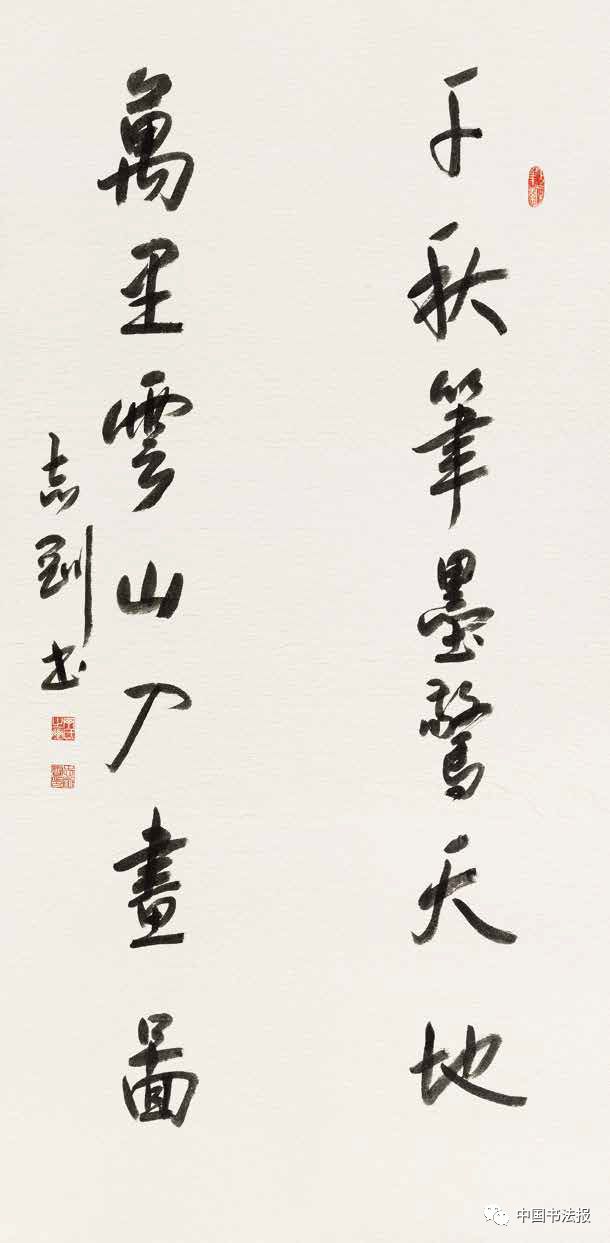 千秋筆墨驚天地
萬里雲山入畫圖
志剛书
中国书法报